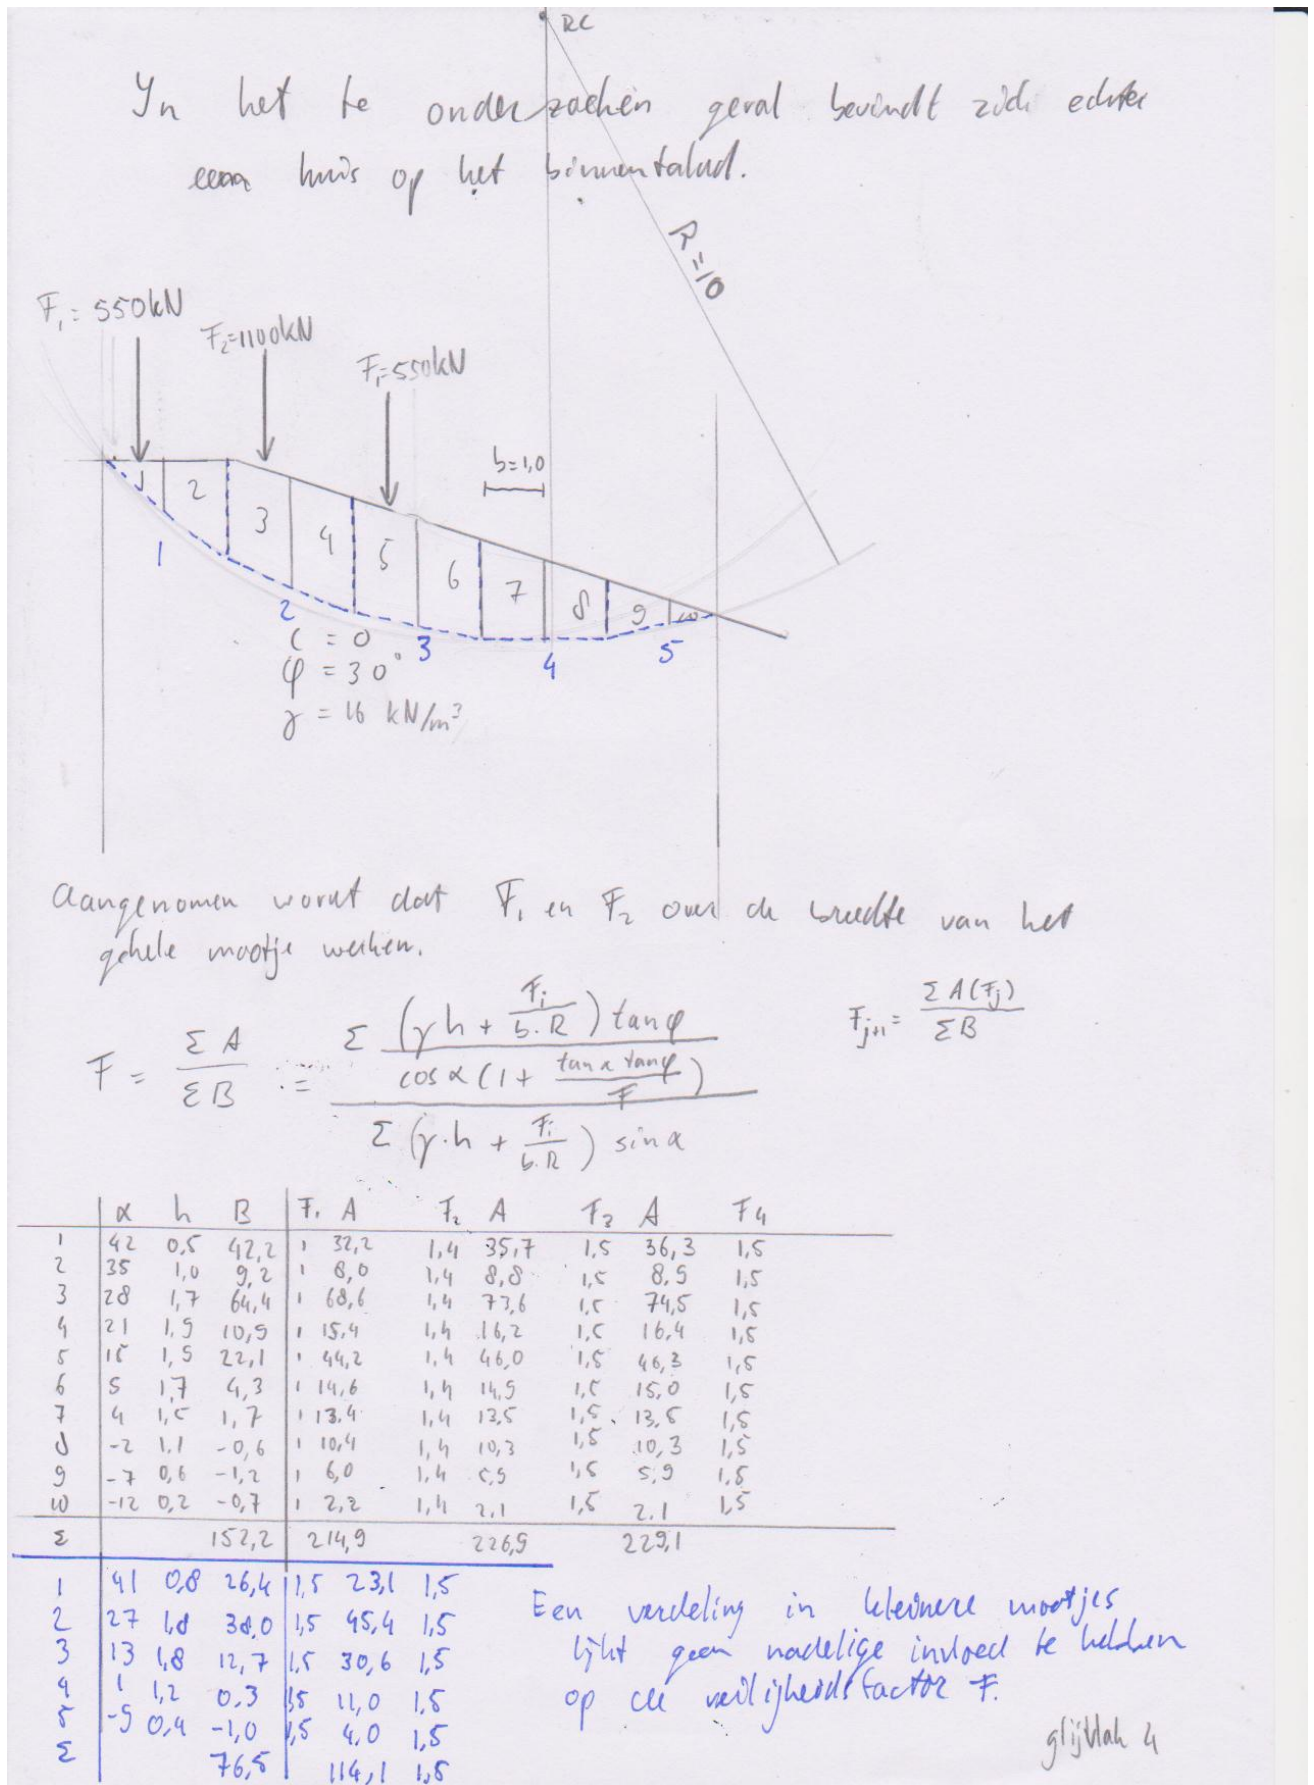 RC
In het te onderzoeken geval bevindt zich echter
een huis op het binnentalud.
R=10
F₁ = 550kN
F₂=1100kN
F₁=550kN
b=1,0
1 2 3 4 5 6 7 8 9 10
1 2 3 4 5
c = 0
φ = 30°
γ = 16 kN/m³
Aangenomen wordt dat F₁ en F₂ over de breedte van het
gehele mootje werken.
F = ΣA / ΣB = Σ ((γh + Fi/(b.R)) tanφ / (cosα(1 + tanα tanφ / F))) / Σ (γ.h + Fi/(b.R)) sinα
Fj+1 = ΣA(Fj) / ΣB
α h B F₁ A F₂ A F₃ A F4
1 42 0,5 42,2 1 32,2 1,4 35,7 1,5 36,3 1,5
2 35 1,0 9,2 1 8,0 1,4 8,8 1,5 8,9 1,5
3 28 1,7 64,4 1 68,6 1,4 73,6 1,5 74,5 1,5
4 21 1,9 10,9 1 15,4 1,4 16,2 1,5 16,4 1,5
5 15 1,9 22,1 1 44,2 1,4 46,0 1,5 46,3 1,5
6 5 1,7 4,3 1 14,6 1,4 14,9 1,5 15,0 1,5
7 4 1,5 1,7 1 13,4 1,4 13,5 1,5 13,5 1,5
8 -2 1,1 -0,6 1 10,4 1,4 10,3 1,5 10,3 1,5
9 -7 0,6 -1,2 1 6,0 1,4 5,9 1,5 5,9 1,5
10 -12 0,2 -0,7 1 2,2 1,4 2,1 1,5 2,1 1,5
Σ 152,2 214,9 226,9 229,1
1 41 0,8 26,4 1,5 23,1 1,5
2 27 1,8 38,0 1,5 45,4 1,5
3 13 1,8 12,7 1,5 30,6 1,5
4 1 1,2 0,3 1,5 11,0 1,5
5 -9 0,4 -1,0 1,5 4,0 1,5
Σ 76,5 114,1 1,5
Een verdeling in kleinere mootjes
lijkt geen nadelige invloed te hebben
op de veiligheidsfactor F.
glijvlak 4